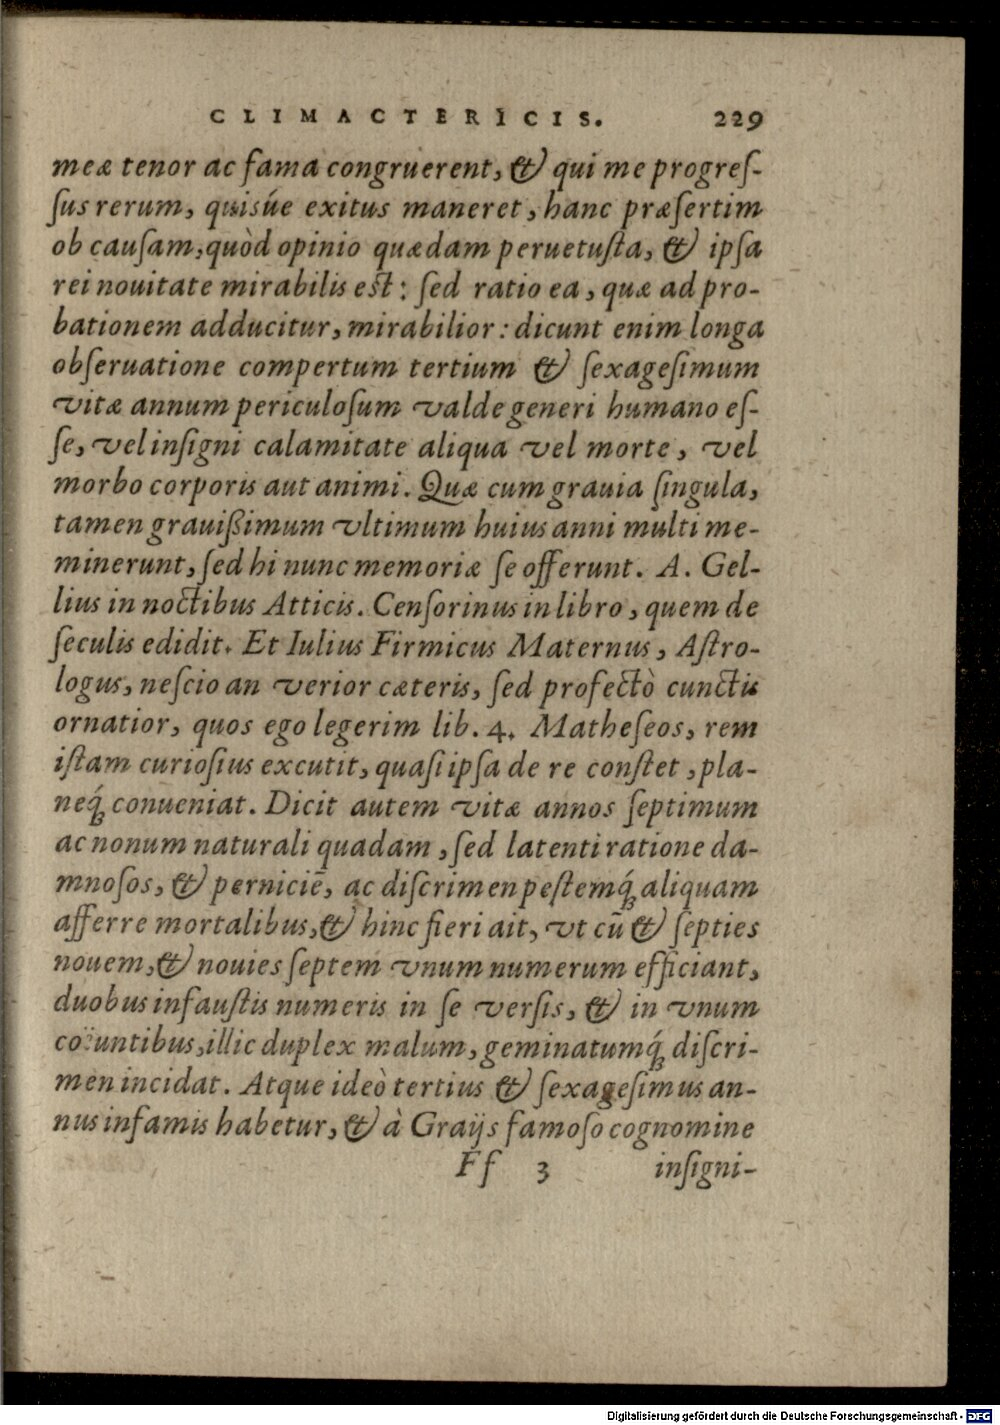 CLIMACTERICIS. 229
meæ tenor ac fama congruerent, & qui me progreſ-
ſus rerum, quisúe exitus maneret, hanc præſertim
ob cauſam, quòd opinio quædam peruetuſta, & ipſa
rei nouitate mirabilis est: ſed ratio ea, quæ ad pro-
bationem adducitur, mirabilior: dicunt enim longa
obſeruatione compertum tertium & ſexageſimum
vitæ annum periculoſum valde generi humano eſ-
ſe, vel inſigni calamitate aliqua vel morte, vel
morbo corporis aut animi. Quæ cum grauia ſingula,
tamen grauißimum vltimum huius anni multi me-
minerunt, ſed hi nunc memoriæ ſe offerunt. A. Gel-
lius in noctibus Atticis. Cenſorinus in libro, quem de
ſeculis edidit. Et Iulius Firmicus Maternus, Aſtro-
logus, neſcio an verior cæteris, ſed profectò cunctis
ornatior, quos ego legerim lib. 4. Matheſeos, rem
iſtam curioſius excutit, quaſi ipſa de re conſtet, pla-
neq́; conueniat. Dicit autem vitæ annos ſeptimum
ac nonum naturali quadam, ſed latenti ratione da-
mnoſos, & perniciē, ac diſcrimen peſtemq́; aliquam
afferre mortalibus, & hinc fieri ait, vt cū & ſepties
nouem, & nouies ſeptem vnum numerum efficiant,
duobus infauſtis numeris in ſe verſis, & in vnum
coëuntibus, illic duplex malum, geminatumq́; diſcri-
men incidat. Atque ideò tertius & ſexageſimus an-
nus infamis habetur, & à Graijs famoſo cognomine
Ff 3 inſigni-
Digitalisierung gefördert durch die Deutsche Forschungsgemeinschaft - DFG